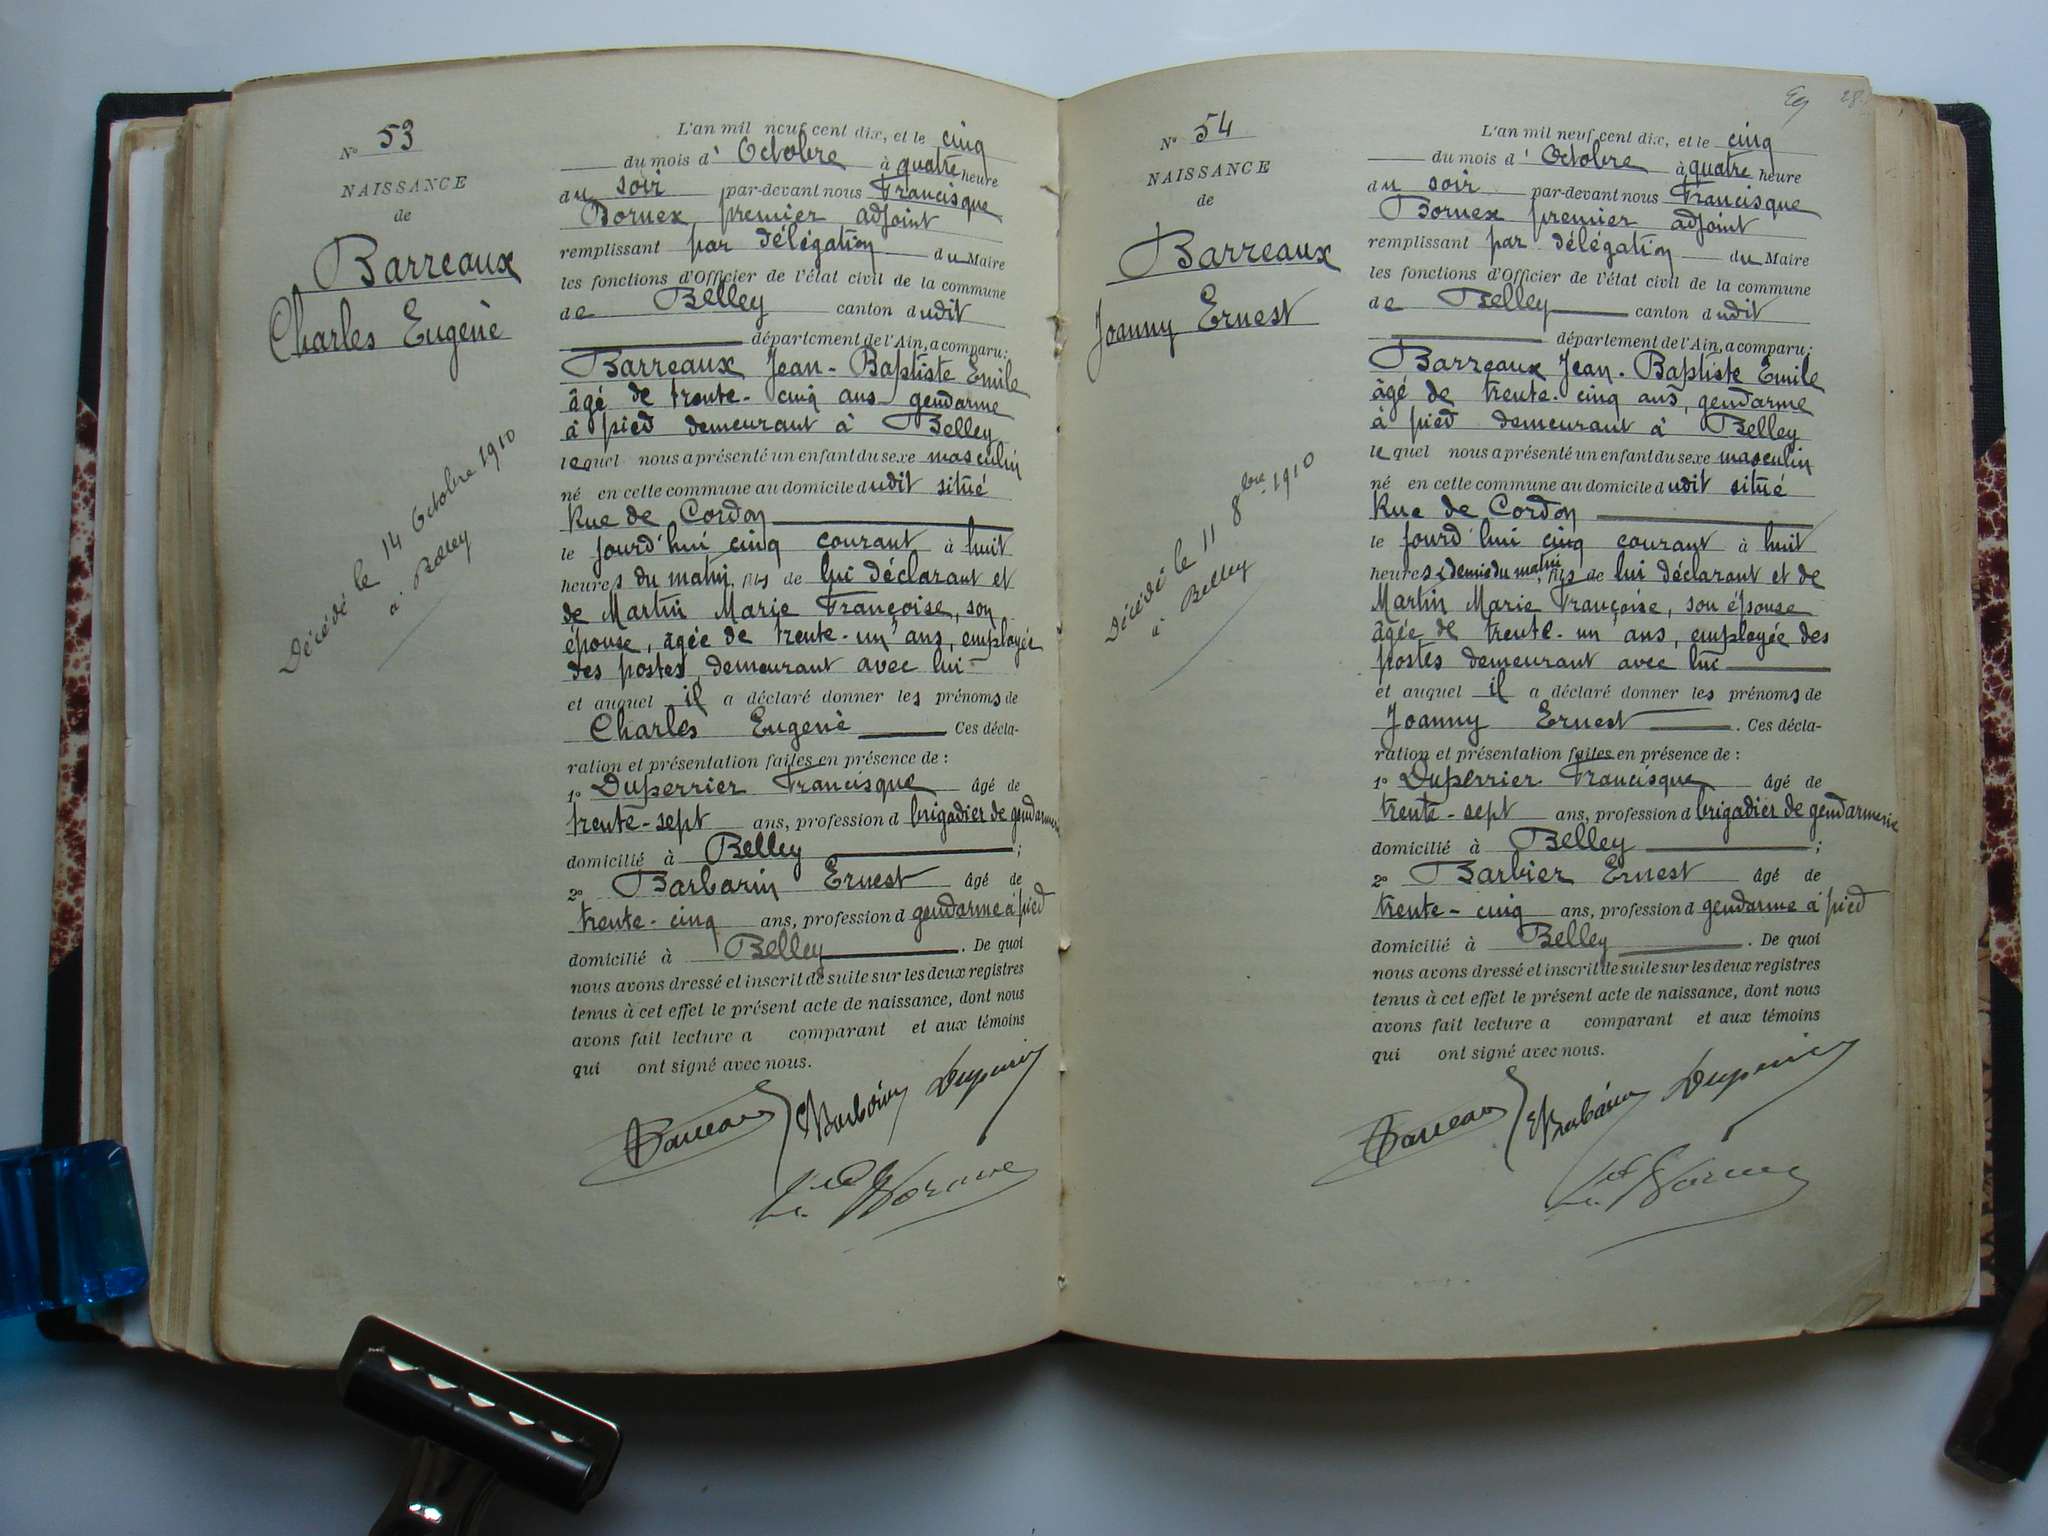 N° 53
NAISSANCE
de
Barreaux
Charles Eugène
Décédé le 14 Octobre 1910
à Belley
L'an mil neuf cent dix, et le cinq
du mois d' Octobre à quatre heure
du soir par-devant nous Francisque
Bornex premier adjoint
remplissant par délégation du Maire
les fonctions d'Officier de l'état civil de la commune
de Belley canton dudit
département de l'Ain, a comparu:
Barreaux Jean-Baptiste Emile
âgé de trente-cinq ans gendarme
à pied demeurant à Belley
lequel nous a présenté un enfant du sexe masculin
né en cette commune au domicile dudit situé
Rue de Cordon
le jourd'hui cinq courant à huit
heures du matin fils de lui déclarant et
de Martin Marie Françoise, son
épouse, âgée de trente-un ans, employée
des postes, demeurant avec lui
et auquel il a déclaré donner les prénoms de
Charles Eugène Ces décla-
ration et présentation faites en présence de :
1° Duperrier Francisque âgé de
trente-sept ans, profession d brigadier de gendarmerie
domicilié à Belley ;
2° Barbarin Ernest âgé de
trente-cinq ans, profession d gendarme à pied
domicilié à Belley . De quoi
nous avons dressé et inscrit de suite sur les deux registres
tenus à cet effet le présent acte de naissance, dont nous
avons fait lecture a comparant et aux témoins
qui ont signé avec nous.
Barreaux Barbarin Duperrier
Bornex
28
N° 54
NAISSANCE
de
Barreaux
Joanny Ernest
Décédé le 11 8bre 1910
à Belley
L'an mil neuf cent dix, et le cinq
du mois d' Octobre à quatre heure
du soir par-devant nous Francisque
Bornex premier adjoint
remplissant par délégation du Maire
les fonctions d'Officier de l'état civil de la commune
de Belley canton dudit
département de l'Ain, a comparu:
Barreaux Jean-Baptiste Emile
âgé de trente-cinq ans, gendarme
à pied demeurant à Belley
lequel nous a présenté un enfant du sexe masculin
né en cette commune au domicile dudit situé
Rue de Cordon
le jourd'hui cinq courant à huit
heures & demie du matin, fils de lui déclarant et de
Martin Marie Françoise, son épouse
âgée de trente-un ans, employée des
postes demeurant avec lui
et auquel il a déclaré donner les prénoms de
Joanny Ernest . Ces décla-
ration et présentation faites en présence de :
1° Duperrier Francisque âgé de
trente-sept ans, profession d brigadier de gendarmerie
domicilié à Belley ;
2° Barbier Ernest âgé de
trente-cinq ans, profession d gendarme à pied
domicilié à Belley . De quoi
nous avons dressé et inscrit de suite sur les deux registres
tenus à cet effet le présent acte de naissance, dont nous
avons fait lecture a comparant et aux témoins
qui ont signé avec nous.
Barreaux Barbarin Duperrier
Bornex